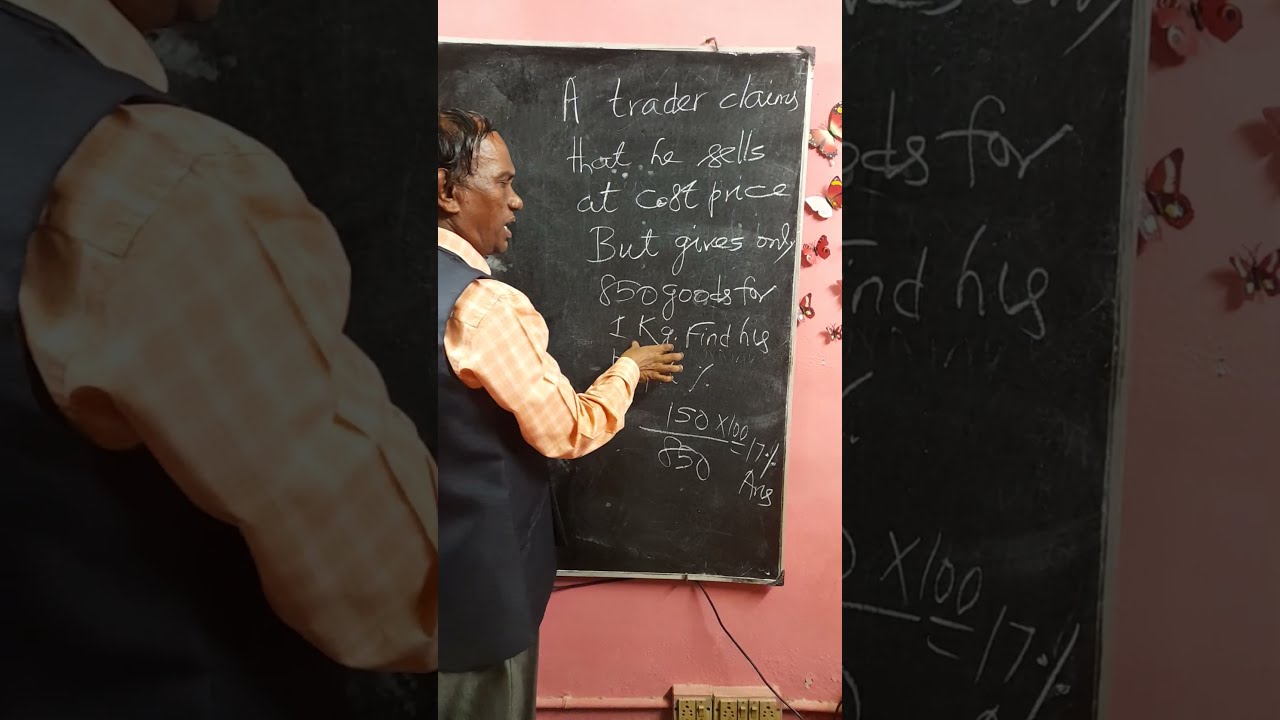 A trader claims
that he sells
at cost price
But gives only
850 goods for
1 Kg. Find his
%
150 × 100
850
= 17%
Ans